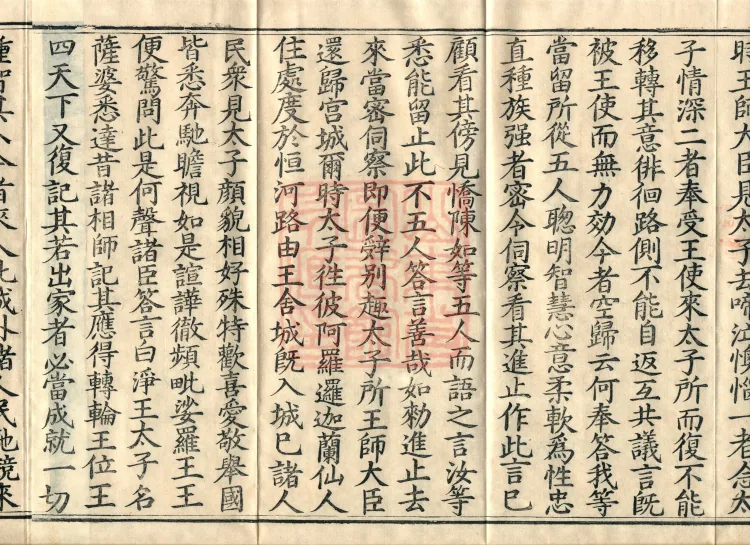 時王師大臣見太子去啼泣懊惱一者念太
子情深二者奉受王使來太子所而復不能
移轉其意徘徊路側不能自返互共議言旣
被王使而無力効今者空歸云何奉答我等
當留所從五人聰明智慧心意柔軟爲性忠
直種族强者密令伺察看其進止作此言已
顧看其傍見憍陳如等五人而語之言汝等
悉能留止此不五人答言善哉如勑進止去
來當密伺察即便辝別趣太子所王師大臣
還歸宫城爾時太子徃彼阿羅邏迦蘭仙人
住處度於恒河路由王舍城旣入城已諸人
民衆見太子顔貌相好殊特歡喜愛敬舉國
皆悉奔馳瞻視如是諠譁徹頻毗娑羅王王
便驚問此是何聲諸臣答言白淨王太子名
薩婆悉達昔諸相師記其應得轉輪王位王
四天下又復記其若出家者必當成就一切
種智其人今者來入此城外諸人民馳競來